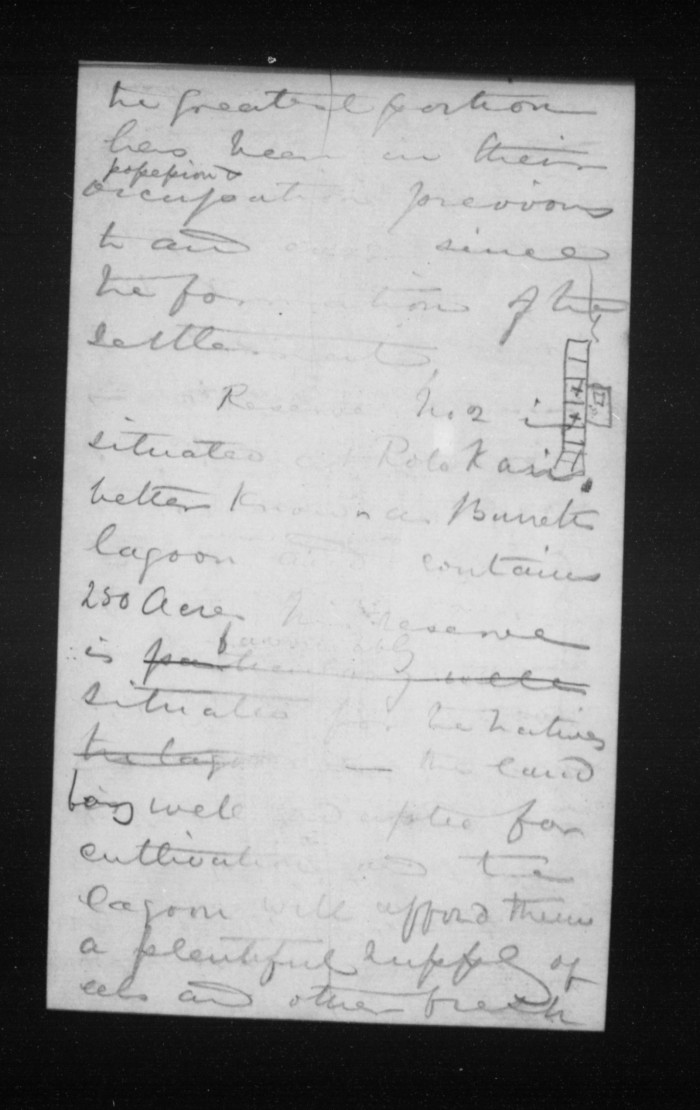 the greatest portion
has been in their
possession &
occupation previous
to and ever since
the formation of the
settlement,
Reserve No 2 is
situated at Roto Kari
better known as Burretts
lagoon and contains
250 Acres this reserve
favourably
is particularly well
situated for the natives
the lagoon the land
being well adapted for
cultivation and the
lagoon will afford them
a plentiful supply of
eels and other fresh